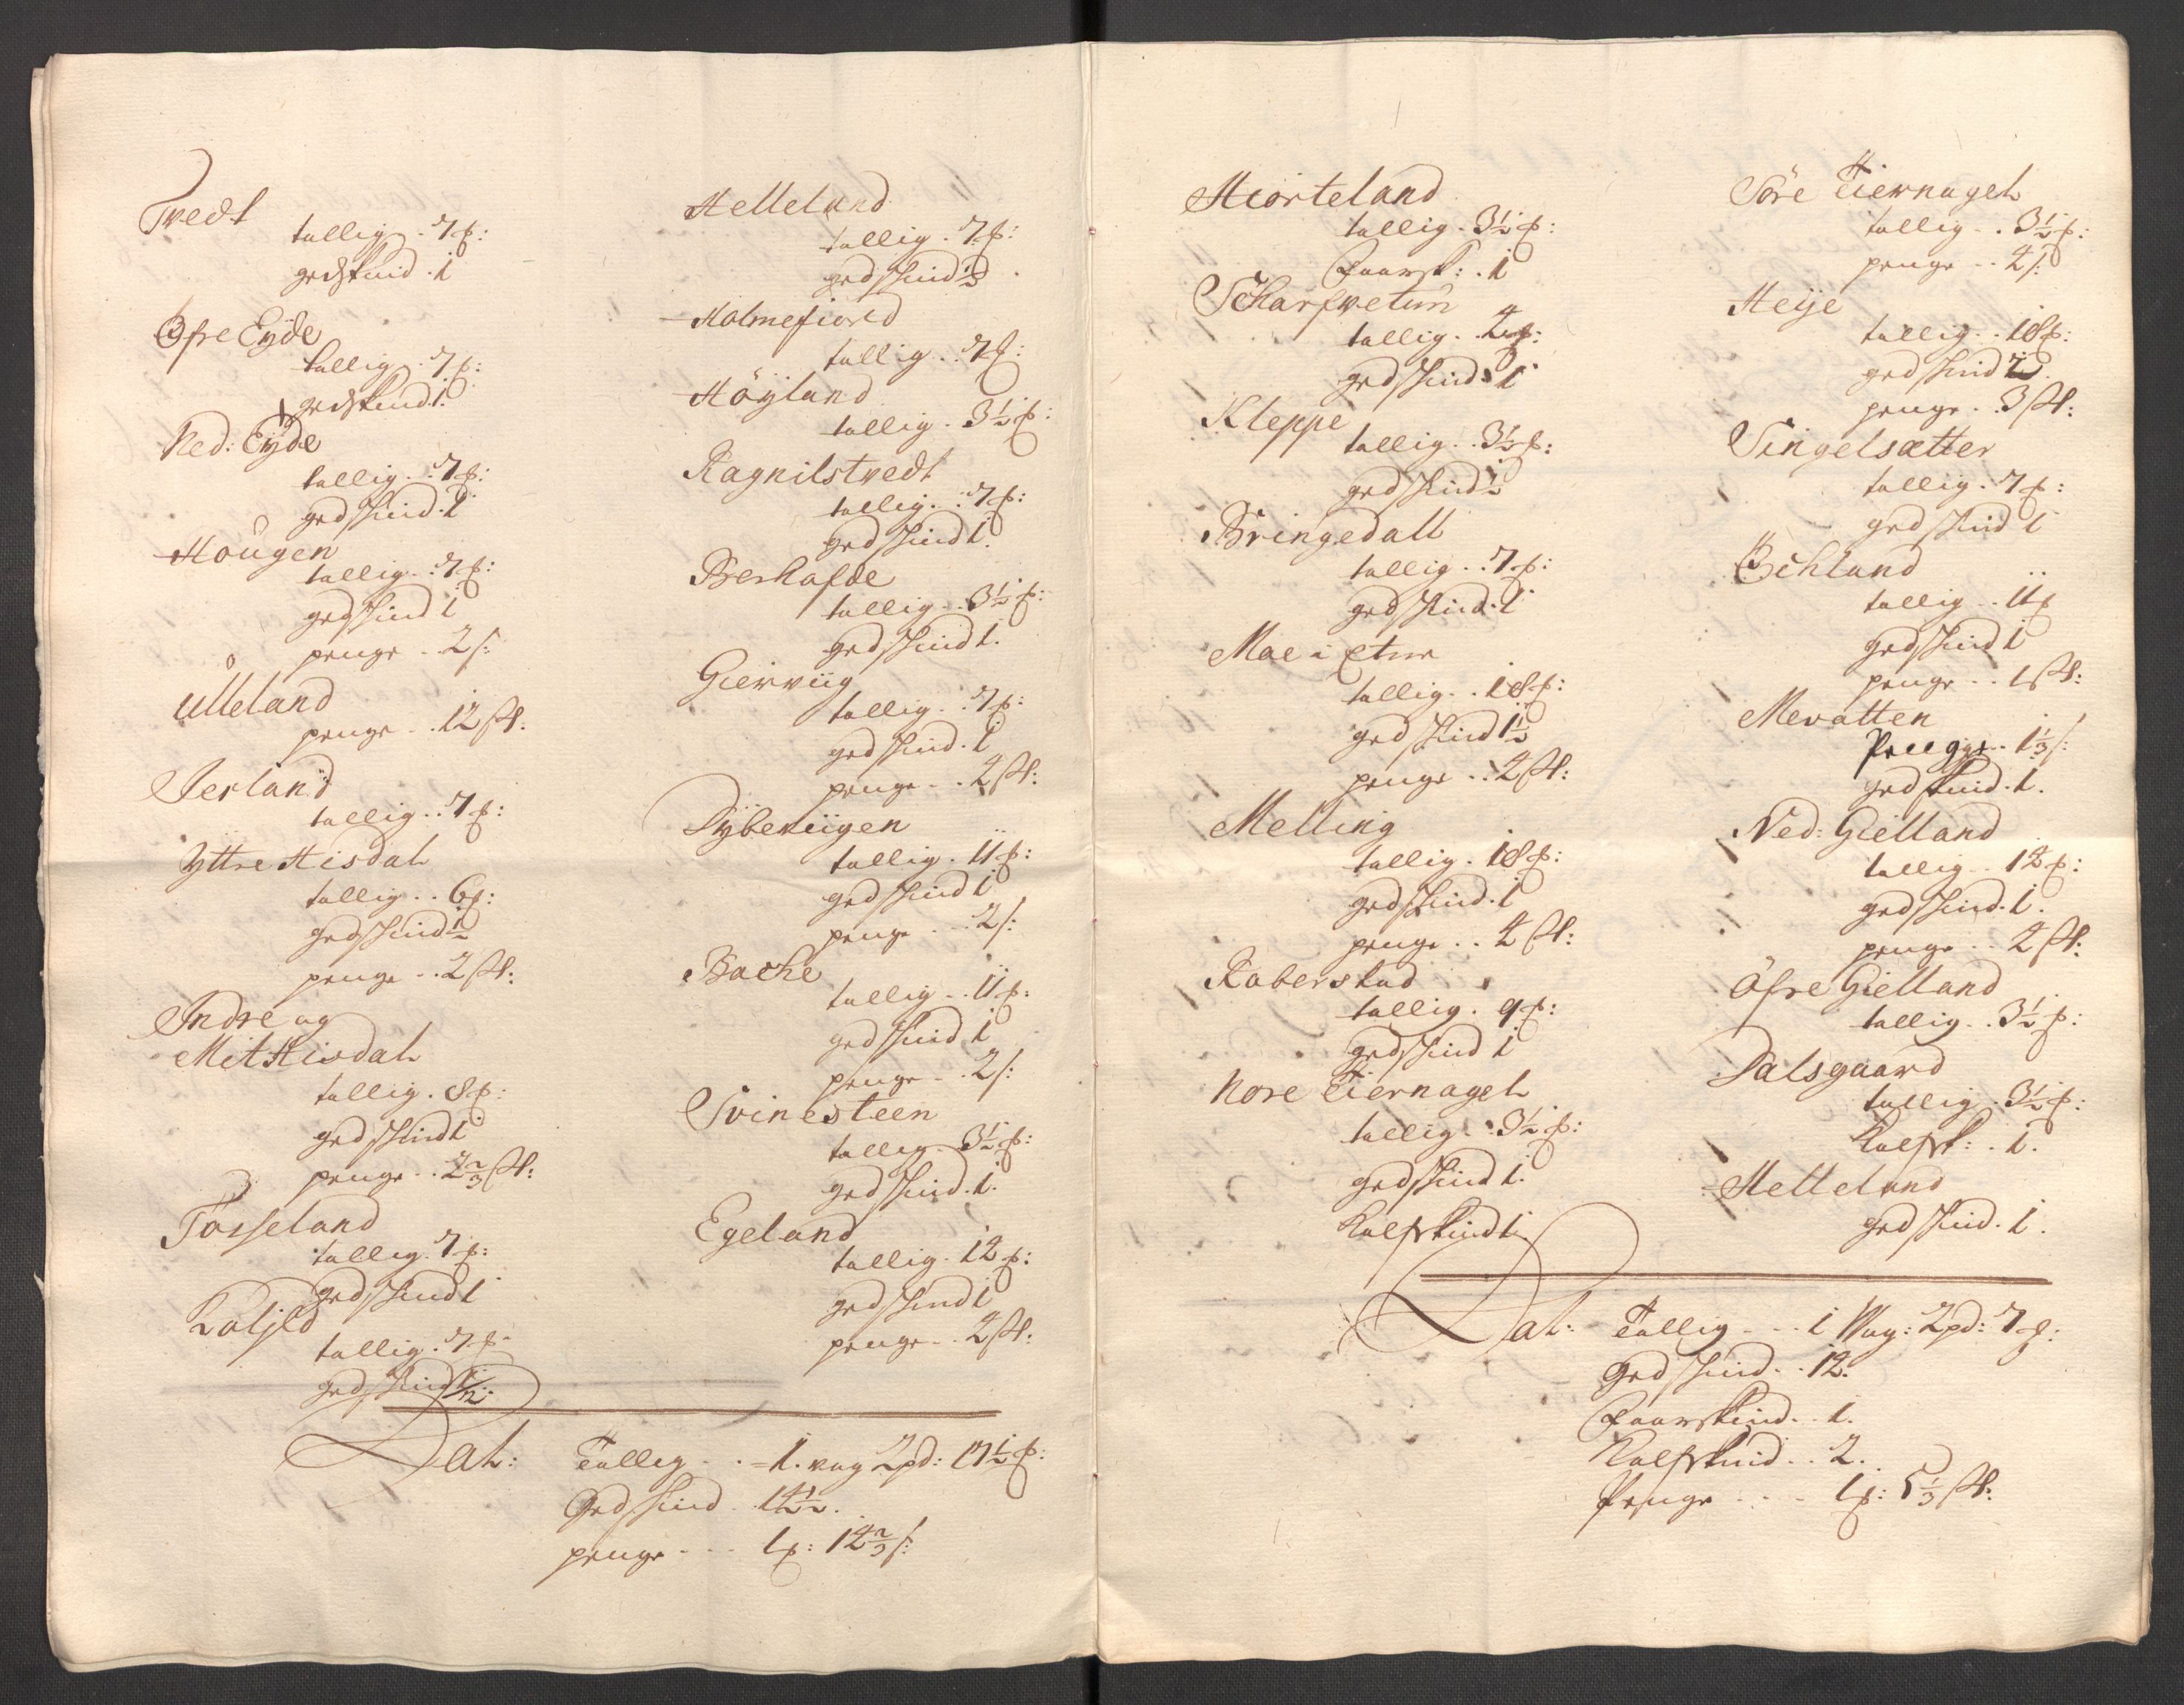 Tvedt
tallig . 7 ℔:
gedskind . 1
Øfre Eÿde
tallig . 7 ℔:
gedskind 1.
Ned: Eÿde
tallig . 7 ℔:
gedskind . 1
Hougen
tallig . 7 ℔:
gedskind 1
penge . . 2 s:
Ulleland
penge . . 12 sk:
Jerland
tallig . . 7 ℔:
Yttre Hisdal
tallig . . 6 ℔:
gedskind ½
penge . . 2 sk:
Indre og
Mit Hisdal
tallig . 8 ℔:
gedskind 1
penge . . 2⅔ sk:
Tosseland
tallig . 7 ℔:
gedskind 1
tallig . 7 ℔
gedskind ½
Helleland
tallig . 7 ℔:
gedskind ½
Holmefiord
tallig . . 7 ℔:
Höÿland
tallig . 3½ ℔:
Ragnilstvedt
tallig . . 7 ℔:
gedskind 1.
Berhafde
tallig . . 3½ ℔:
gedskind 1.
Gierviig
tallig . 7 ℔:
gedskind . 1
penge . . 2 sk:
Dÿbeviigen
tallig . 11 ℔:
gedskind 1
penge . . 2 s:
Backe
tallig . . 11 ℔:
gedskind 1
penge . . 2 s:
Svinesteen
tallig . 3½ ℔:
gedskind . 1.
Egeland
tallig . 12 ℔:
gedskind 1
penge . . 2 sk:
Lat: Tallig . . 1. vog 2 pd: 17½ ℔:
Gedskind . 14½.
penge . . . 1 ℔: 12⅔ s:
Hiorteland
tallig . 3½ ℔:
Faarsk: . 1
Scharfvetun
tallig . . 4 ℔:
gedskind . 1
Kleppe
tallig . . 3½ ℔:
gedskind ½
Bringedall
tallig . . 7 ℔:
gedskind . 1
Moe i Etne
tallig . . 18 ℔:
gedskind 1½
penge . . 2 sk:
Melling
tallig . 18 ℔:
gedskind . 1
penge . . 2 sk:
Raberstad
tallig . 9 ℔:
gedskind 1
Nore Tiernagel
tallig . . 3½ ℔:
gedskind 1.
Kalfskind 1.
Söre Tiernagel
tallig . . 3½ ℔:
penge . . 2 s:
Heÿe
tallig . . 18 ℔:
gedskind 2.
penge . . 3 sk:
Singelsætter
tallig . 7 ℔:
gedskind 1
Öchland
tallig . . 11 ℔
gedskind 1
penge . . 1 sk:
Mevatten
Penge . . 1⅓ s:
gedskind . 1.
Ned: Gielland
tallig . . 12 ℔:
gedskind . 1.
penge . . 2 sk:
Öfre Gielland
tallig . . 3½ ℔:
Dalsgaard
tallig . 3½ ℔:
Kalfsk: . 1.
Helleland
gedskind . 1.
Lat: Tallig . . . 1 Vog: 2 pd: 7 ℔:
Gedskind . . 12.
Faarskind . . 1.
Kalfskind . . 2.
Penge . . . . 1 ℔: 5⅓ sk: